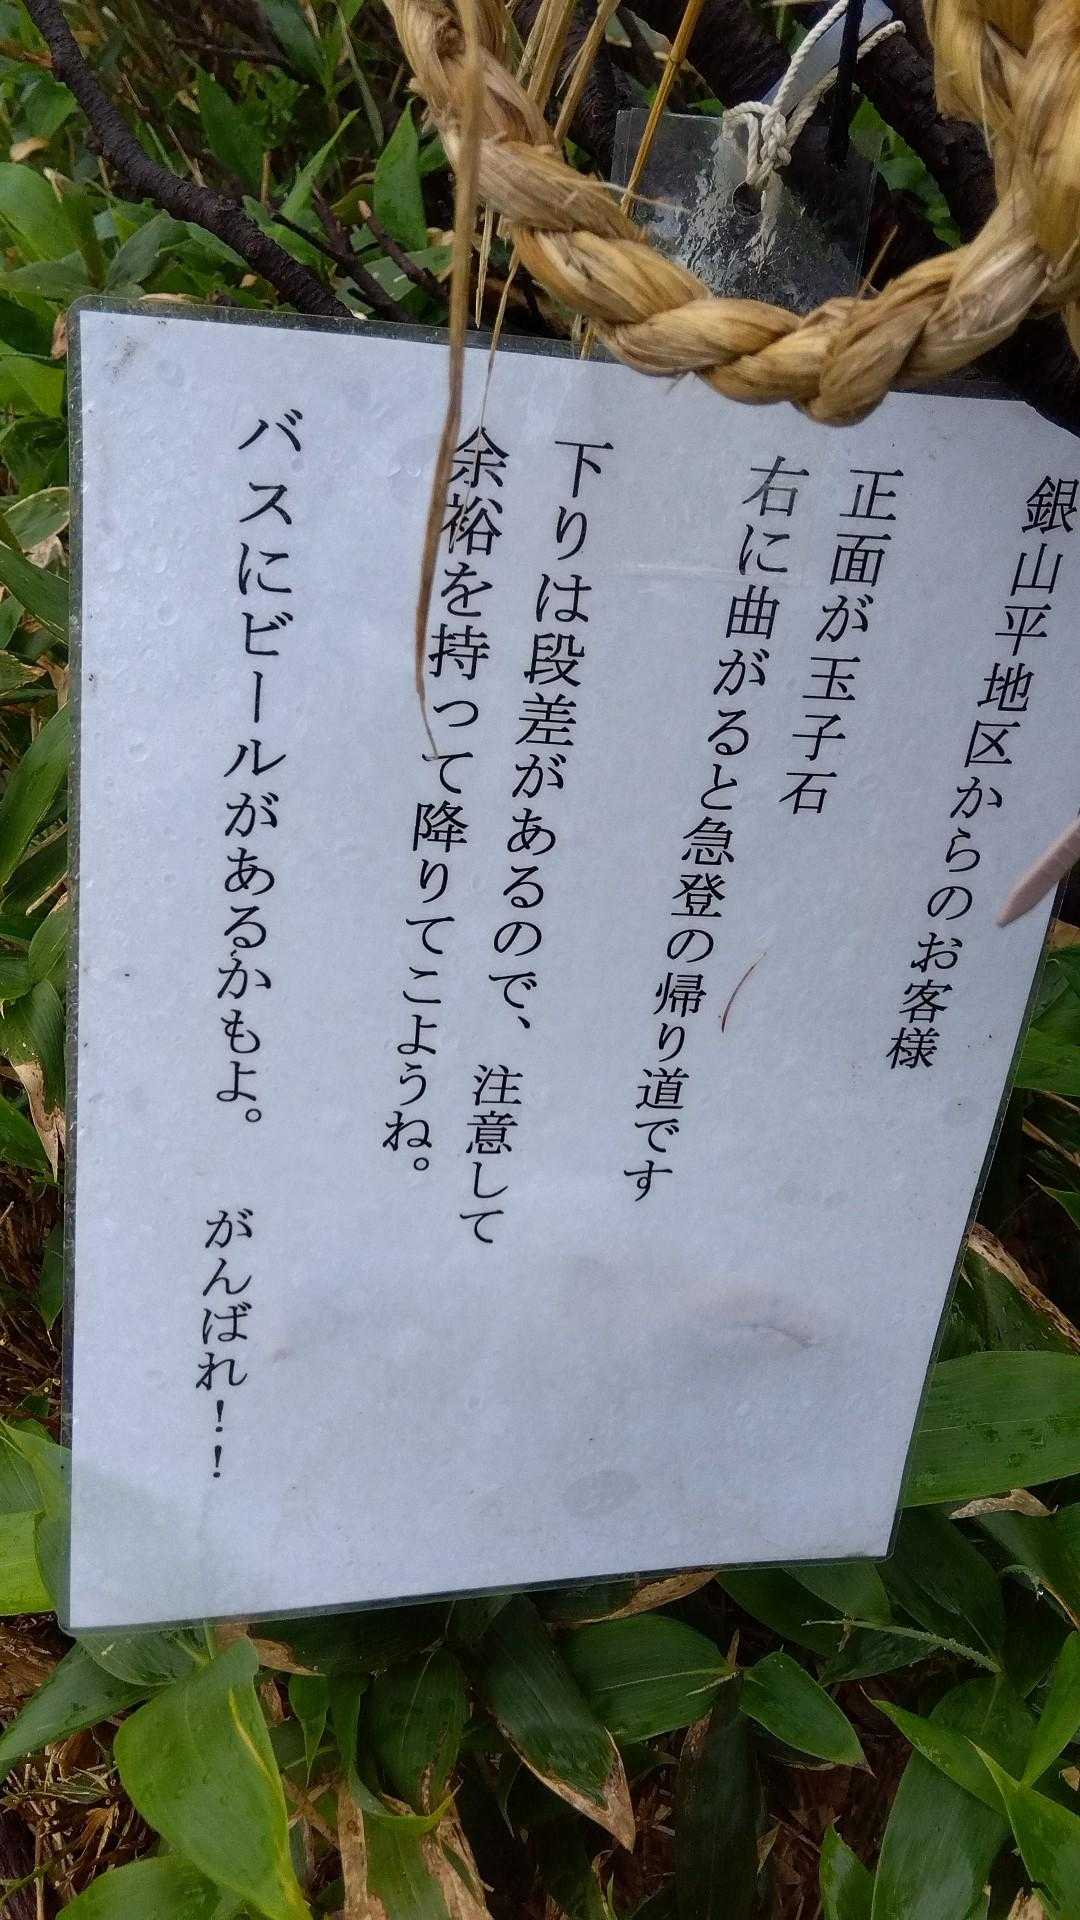 銀山平地区からのお客様
正面が玉子石
右に曲がると急登の帰り道です
下りは段差があるので、 注意して
余裕を持って降りてこようね。
バスにビールがあるかもよ。 がんばれ！！